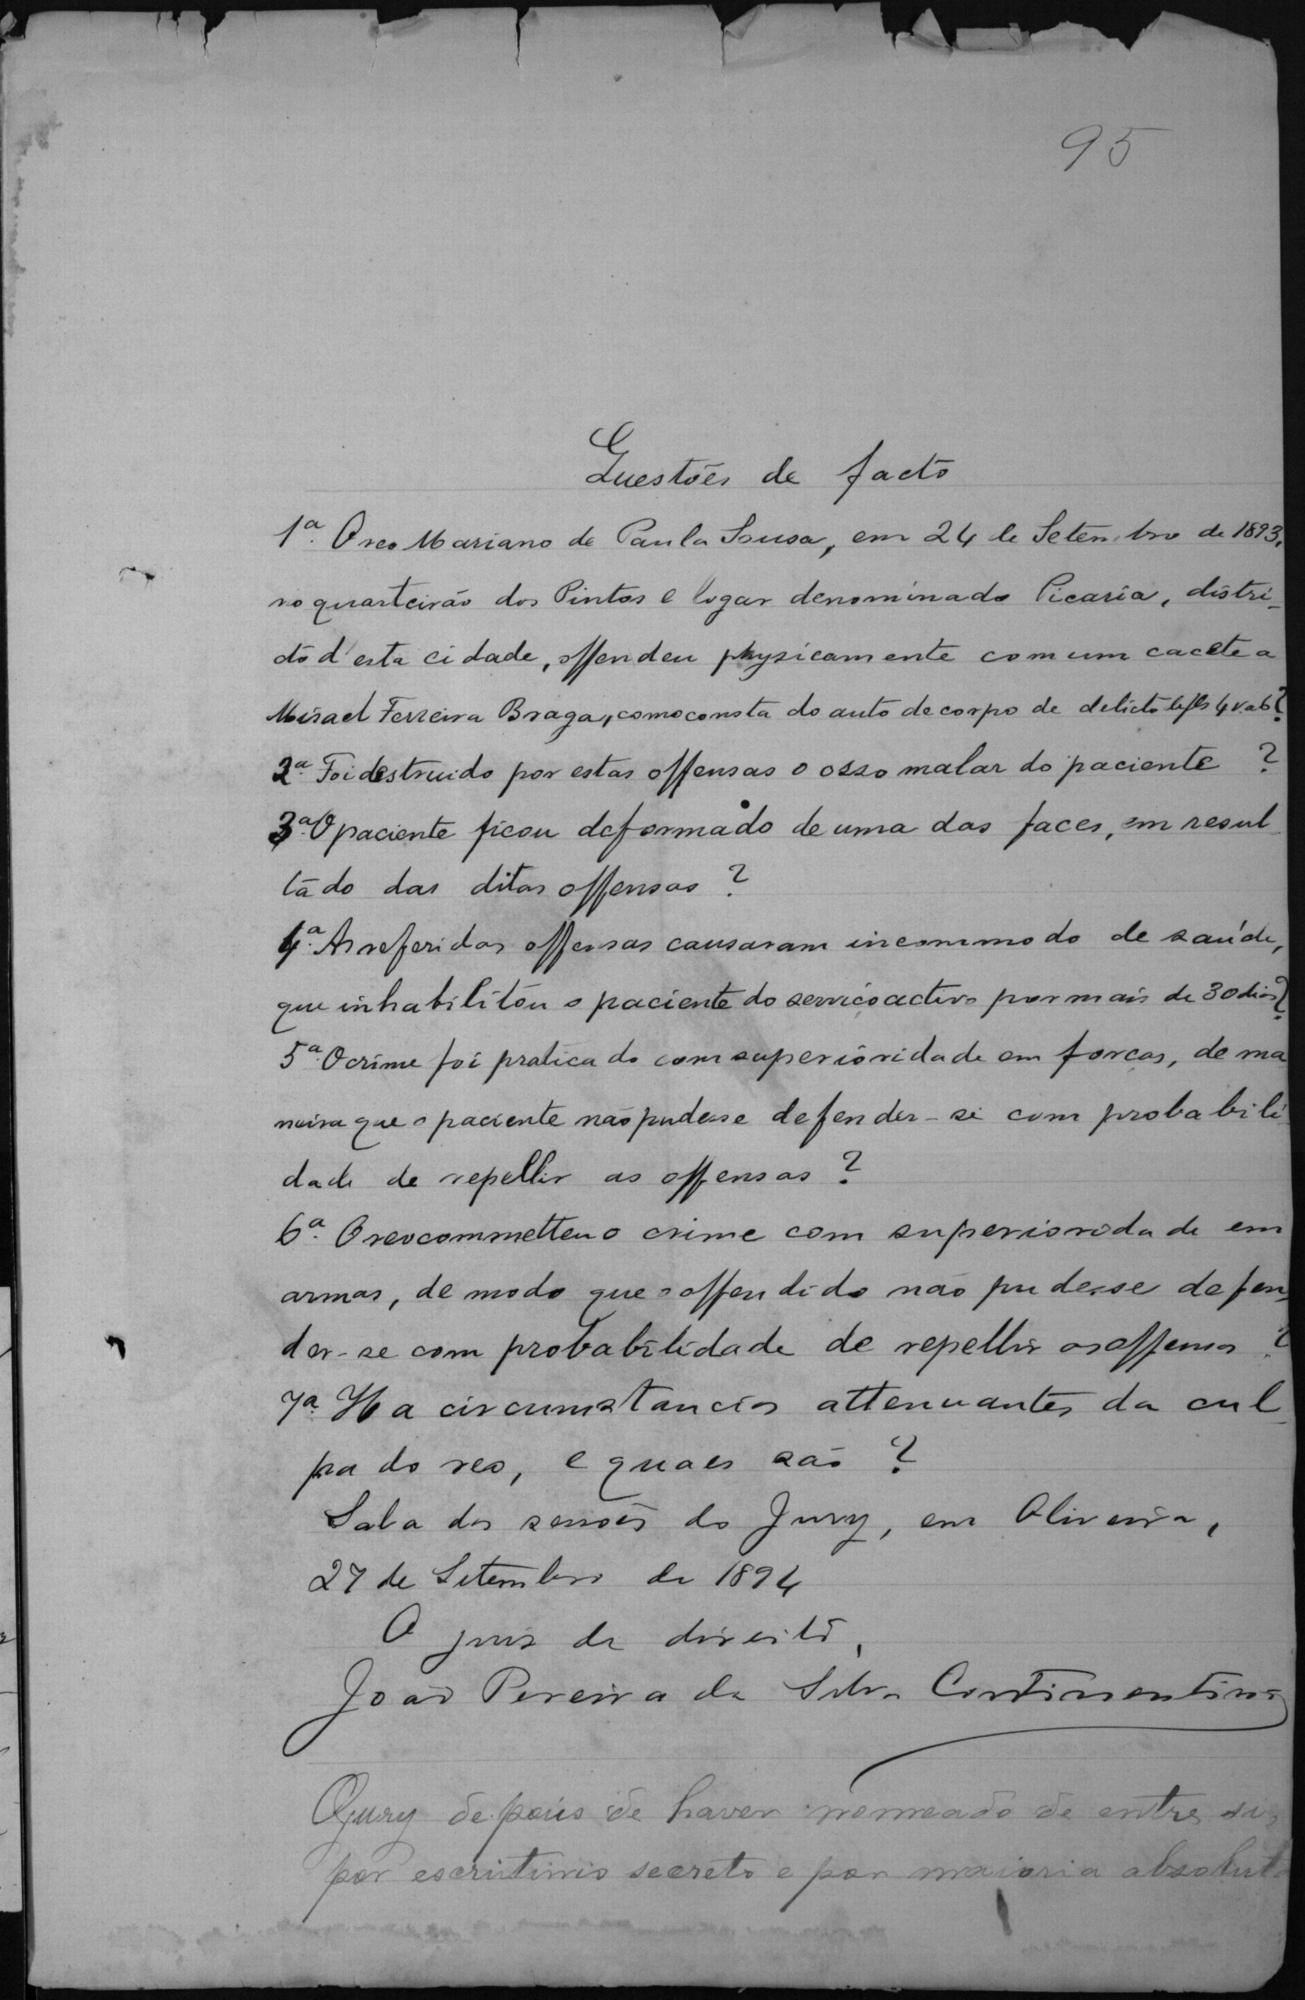 95
Questões de facto
1ª. O reo Mariano de Paula Sousa, em 24 de Setembro de 1893,
no quarteirão dos Pintos e logar denominado Picaria, distri-
cto d'esta cidade, offendeu physicamente com um cacete a
Misael Ferreira Braga, como consta do auto de corpo de delicto de fls 4 v a 6?
2ª. Foi destruido por estas offensas o osso malar do paciente ?
3ª. O paciente ficou deformado de uma das faces, em resul-
tado das ditas offensas ?
4ª. As referidas offensas causaram incommodo de saúde,
que inhabilitou o paciente do serviço activo por mais de 30 dias?
5ª O crime foi praticado com superioridade em forças, de ma
neira que o paciente não pudesse defender-se com probabili-
dade de repellir as offensas ?
6ª. O reo commetteu o crime com superioridade em
armas, de modo que o offendido não pudesse defen-
der-se com probabilidade de repellir as offensas ?
7ª. Ha circumstancias attenuantes da cul-
pa do reo, e quaes são ?
Sala das sessões do Jury, em Oliveira,
27 de Setembro de 1894
O juis de direito,
João Pereira da Silva Continentino
O Jury depois de haver nomeado de entre si,
por escrutinio secreto e por maioria absoluta